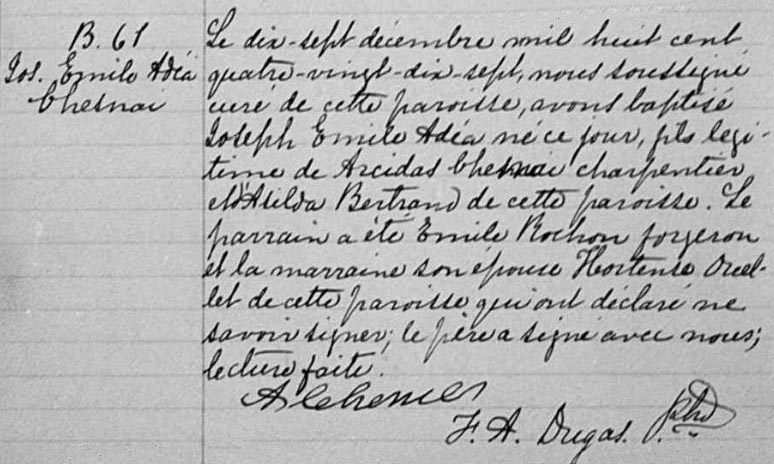 B. 61
Jos. Emile Adéa
Chesnai
Le dix-sept décembre mil huit cent
quatre-vingt-dix-sept, nous soussigné
curé de cette paroisse, avons baptisé
Joseph Emile Adéa né ce jour, fils legi-
time de Arcidas Chesnai charpentier
et d'Asilda Bertrand de cette paroisse. Le
parrain a été Emile Rochon forgeron
et la marraine son épouse Hortense Ouel-
let de cette paroisse qui ont déclaré ne
savoir signer; le père a signé avec nous;
lecture faite.
F. A. Dugas.